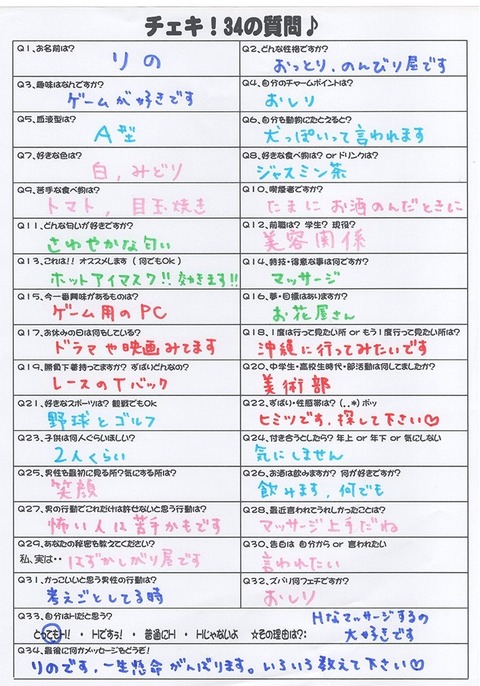 チェキ！34の質問♪
Q1、お名前は？
りの
Q2、どんな性格ですか？
おっとり、のんびり屋です
Q3、趣味はなんですか？
ゲームが好きです
Q4、自分のチャームポイントは？
おしり
Q5、血液型は？
A型
Q6、自分も動物にたとえると？
犬っぽいって言われます
Q7、好きな色は？
白，みどり
Q8、好きな食べ物は？ or ドリンクは？
ジャスミン茶
Q9、苦手な食べ物は？
トマト，目玉焼き
Q10、喫煙者ですか？
たまにお酒のんだときに
Q11、どんな匂いが好きですか？
さわやかな匂い
Q12、前職は？ 学生？ 現役？
美容関係
Q13、これは！！ オススメします（何でもOK）
ホットアイマスク!! 効きます!!
Q14、特技・得意な事は何ですか？
マッサージ
Q15、今一番興味があるものは？
ゲーム用のPC
Q16、夢・目標はありますか？
お花屋さん
Q17、お休みの日は何もしている？
ドラマや映画みてます
Q18、1度は行って見たい所 or もう1度行って見たい所は？
沖縄に行ってみたいです
Q19、勝負下着持ってますか？ ずばりどんなの？
レースのTバック
Q20、中学生・高校生時代・部活動は何してましたか？
美術部
Q21、好きなスポーツは？ 観戦でもOK
野球とゴルフ
Q22、ずばり・性感帯は？（．．*）ポッ
ヒミツです，探して下さい♡
Q23、子供は何人ぐらいほしい？
2人くらい
Q24、付き合うとしたら？ 年上 or 年下 or 気にしない
気にしません
Q25、男性も最初に見る所？気にする所は？
笑顔
Q26、お酒は飲みますか？ 何が好きですか？
飲みます，何でも
Q27、男の行動でこれだけは許せないと思う行動は？
怖い人は苦手かもです
Q28、最近言われてうれしかったことは？
マッサージ上手だね
Q29、あなたの秘密も教えてください？
私、実は・・はずかしがり屋です
Q30、告白は 自分から or 言われたい
言われたい
Q31、かっこいいと思う男性の行動は？
考えごとしてる時
Q32、ズバリ何フェチですか？
おしり
Q33、自分はHだと思う？
とってもH！ ・ Hですぅ！ ・ 普通にH ・ Hじゃないよ ☆その理由は？：
Hなマッサージするの
大好きです
Q34、最後に何かメッセージもどうぞ！
りのです，一生懸命がんばります。いろいろ教えて下さい♡